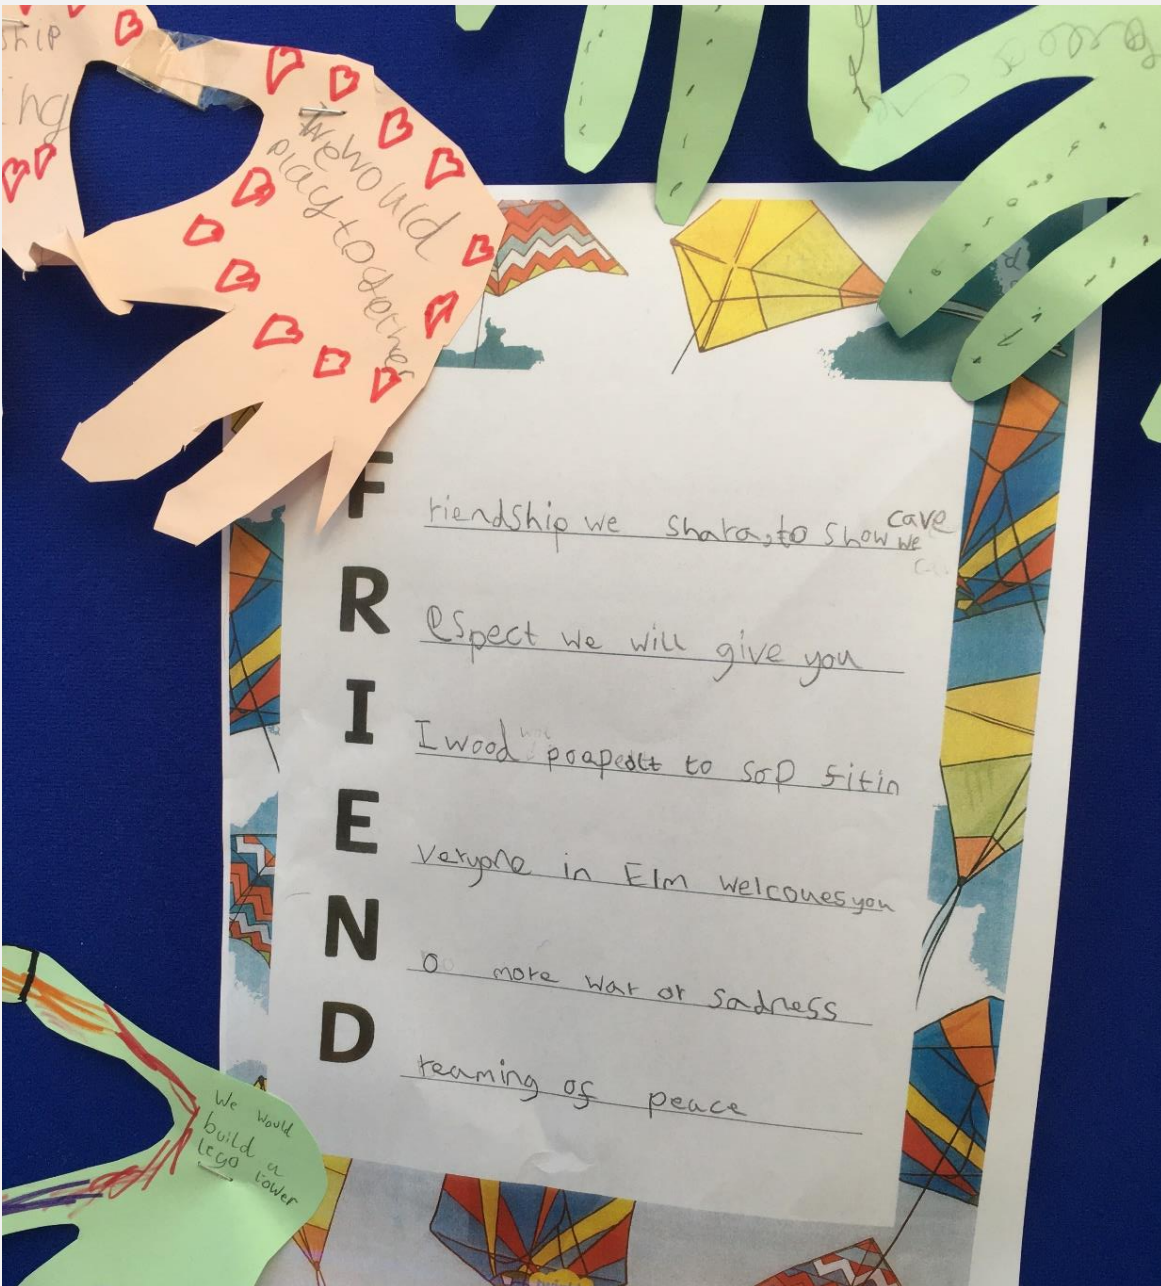 ship
ing
We would
play together
cave
Friendship we shara, to show we
Respect we will give you
I wood poapedtt to sop fitin
Everyone in Elm welcouesyou
No more war or sadness
Dreaming of peace
We would
build a
lego tower